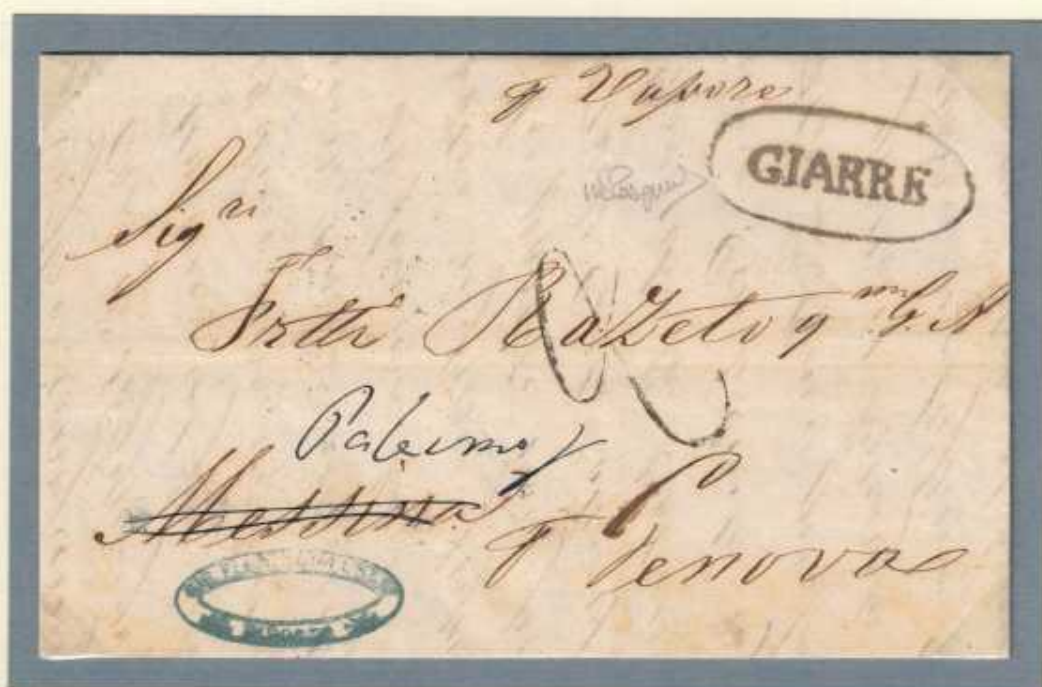 p Vapore
GIARRE
Sigri
Frlli Razeto qm G. A
Palermo
Messina
p Genova